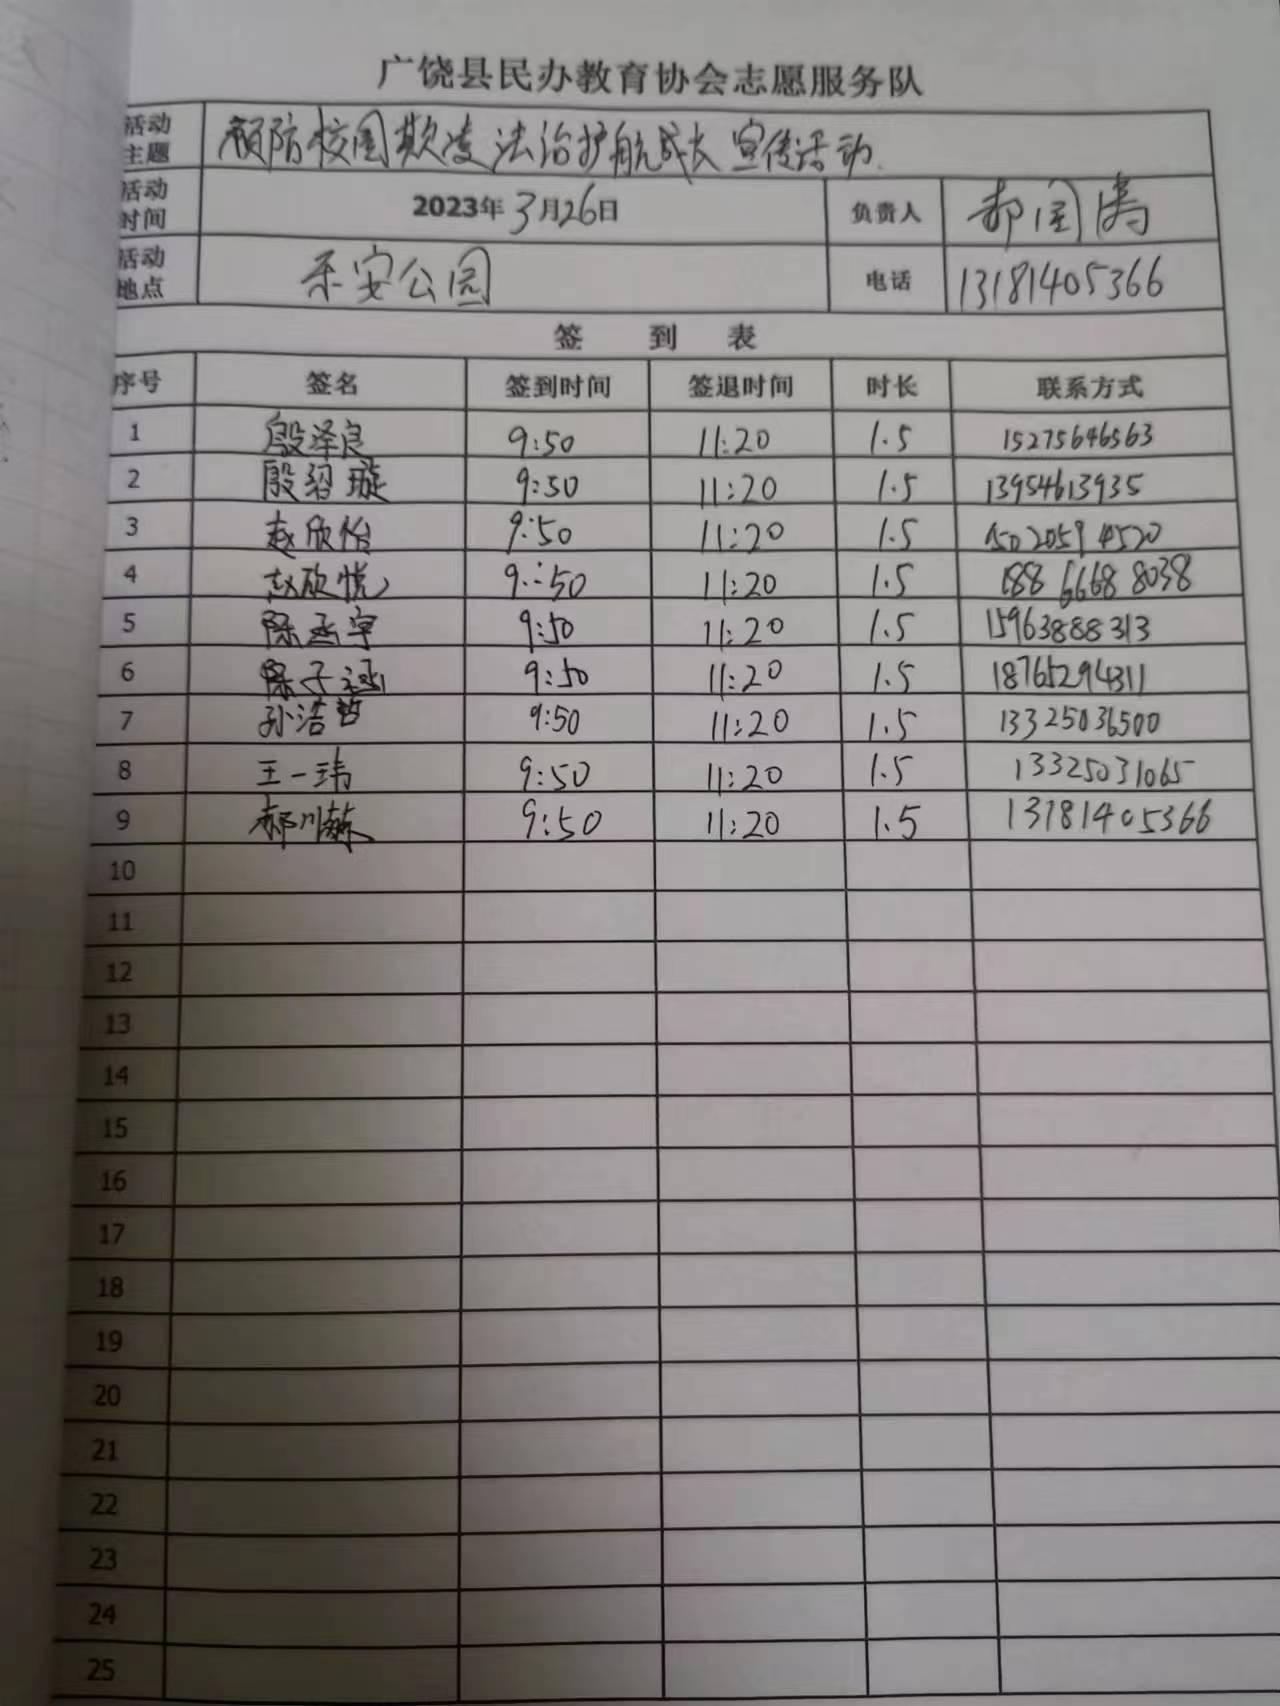 广饶县民办教育协会志愿服务队
活动主题 预防校园欺凌 法治护航成长 宣传活动.
活动时间 2023年3月26日 负责人 郝国涛
活动地点 乐安公园 电话 13181405366
签 到 表
序号 签名 签到时间 签退时间 时长 联系方式
1 殷泽良 9:50 11:20 1.5 15275646563
2 殷绍璇 9:50 11:20 1.5 13954613935
3 赵欣怡 9:50 11:20 1.5 15020594520
4 赵欣悦 9:50 11:20 1.5 188 6668 8038
5 陈丞宇 9:50 11:20 1.5 15963888313
6 陈子涵 9:50 11:20 1.5 18765294311
7 孙浩哲 9:50 11:20 1.5 13325036500
8 王一玮 9:50 11:20 1.5 13325031065
9 郝川 9:50 11:20 1.5 13181405366
10
11
12
13
14
15
16
17
18
19
20
21
22
23
24
25